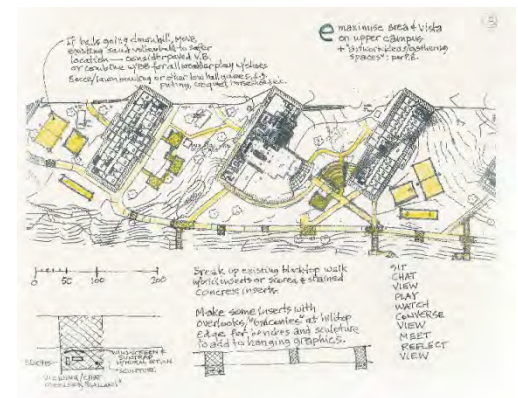 If balls going downhill, move
existing sand volleyball to safer
location — consider paved V.B.
or combine w/BB for all weather play w/shoes
Bocce/lawn bowling or other low ball games, e.g.
putting, croquet, horseshoes etc.
e maximise area & vista
on upper campus
gathering
spaces": per P.B.
5
0 50 100 200
Break up existing blacktop walk
w/brick inserts or scored & stained
concrete inserts.
Make some inserts with
overlooks, "balconies" at hilltop
edge for benches and sculpture
to add to hanging graphics.
SIT
CHAT
VIEW
PLAY
WATCH
CONVERSE
VIEW
MEET
REFLECT
VIEW
WINDSCREEN &
SUNTRAP
SCULPTURE
BENCHES
VIEWING/CHAT